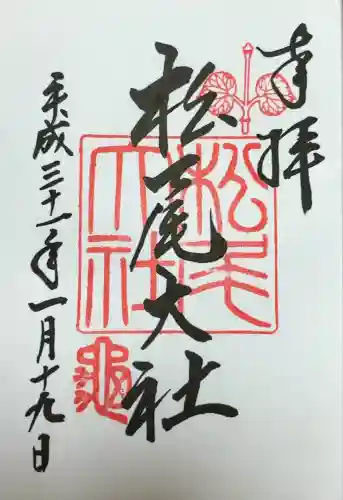 奉拝
松尾大社
平成三十一年一月十九日
松尾大社
亀